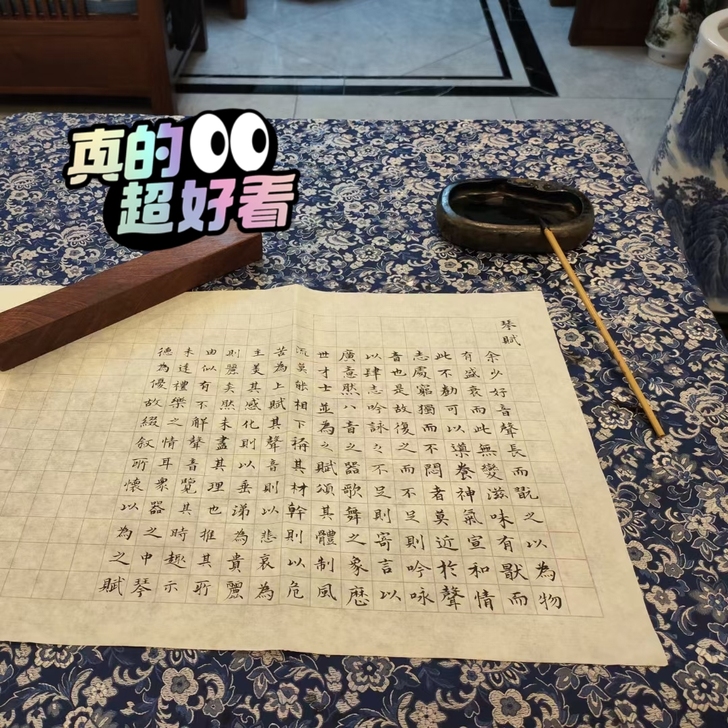 真的
超好看
琴賦
余少好音聲長而翫之以為物
有盛衰而此無變滋味有猒而
此不勌可以導養神氣宣和情
志處窮獨而不悶者莫近於聲
音也是故復之而不足則吟咏
以肆志吟詠々不足則寄言以
廣意然八音之器歌舞之象歷
世才士並為之賦頌其體制風
流莫能相下稱其材幹則以危
苦為上賦其聲音則以悲哀為
主美其感化則以垂涕為貴麗
則麗矣然未盡其理也推其所
由似有不解聲音覽其時趣示
未達禮樂之情耳衆器之中琴
德為優故綴叙所懷以為之賦